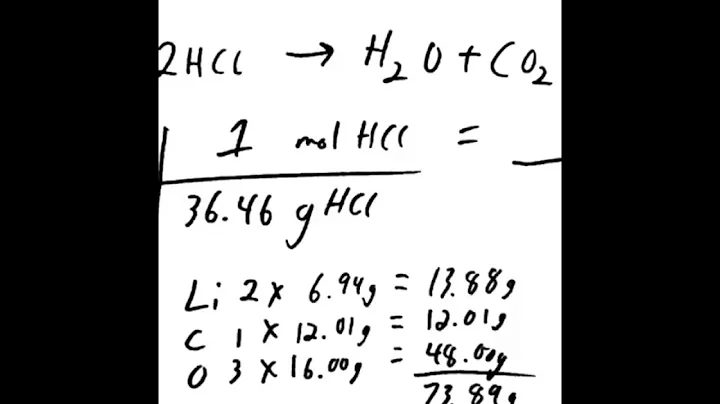 2HCl → H₂O + CO₂
1 mol HCl = __
36.46 g HCl
Li 2 x 6.94g = 13.88g
C 1 x 12.01g = 12.01g
O 3 x 16.00g = 48.00g
73.89g